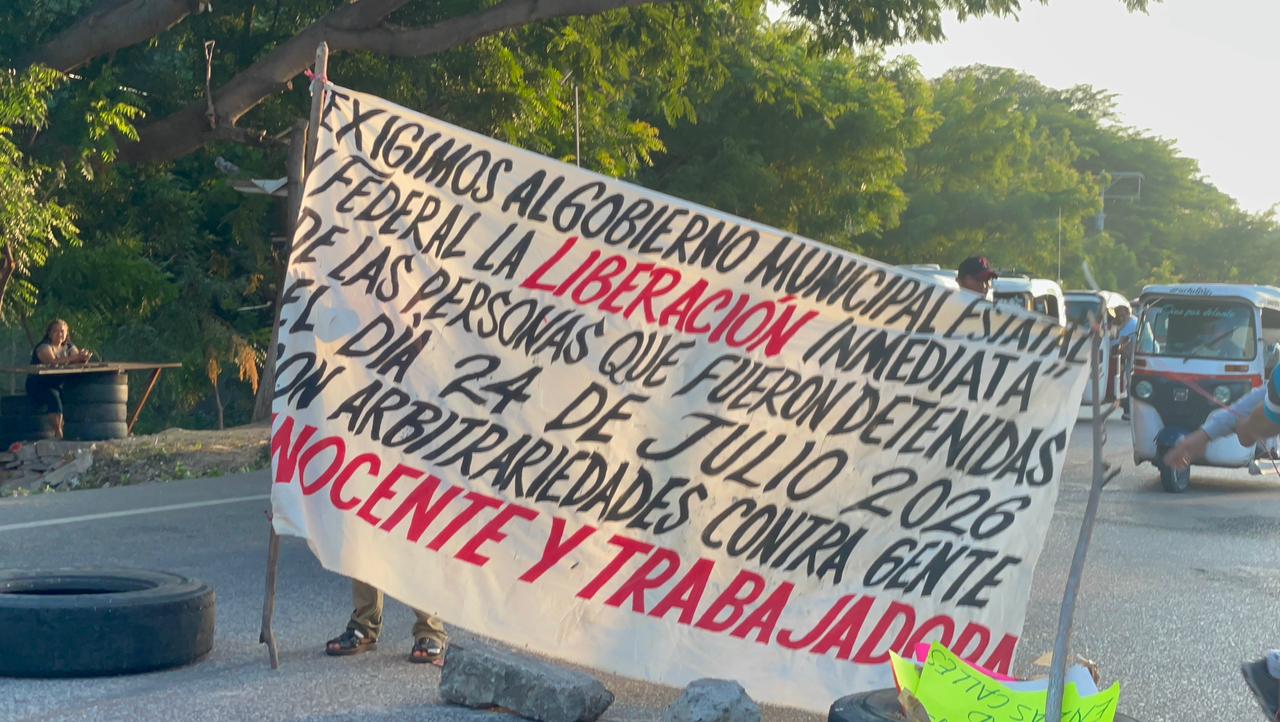 EXIGIMOS AL GOBIERNO MUNICIPAL ESTATAL
Y FEDERAL LA LIBERACIÓN INMEDIATA"
DE LAS PERSONAS QUE FUERON DETENIDAS
EL DÍA 24 DE JULIO 2026
CON ARBITRARIEDADES CONTRA GENTE
INOCENTE Y TRABAJADORA
EN LAS CALLES